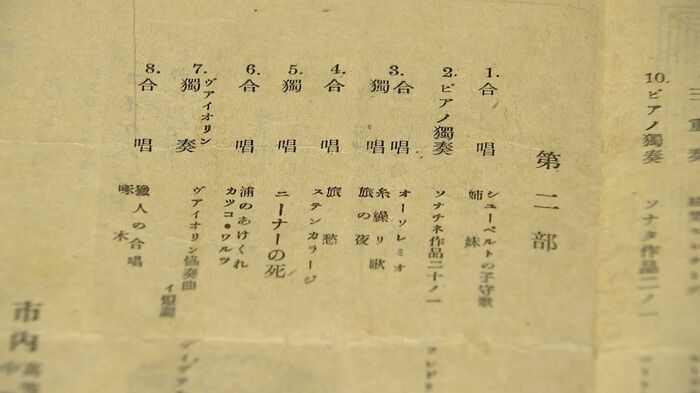 三重奏
10. ピアノ獨奏 ソナタ作品二ノ一
第二部
1. 合唱 シューベルトの子守歌
姉妹
2. ピアノ獨奏 ソナチネ作品二十ノ一
3. 合唱 オーソレミオ
獨唱 糸繰リ歌
旅の夜
4. 合唱 旅愁
ステンカラージ
5. 獨唱 ニーナーの死
6. 合唱 浦のあけくれ
カツコ・ワルツ
7. ヴアイオリン
獨奏 ヴアイオリン協奏曲 イ短調
8. 合唱 獵人の合唱
啄木
市内